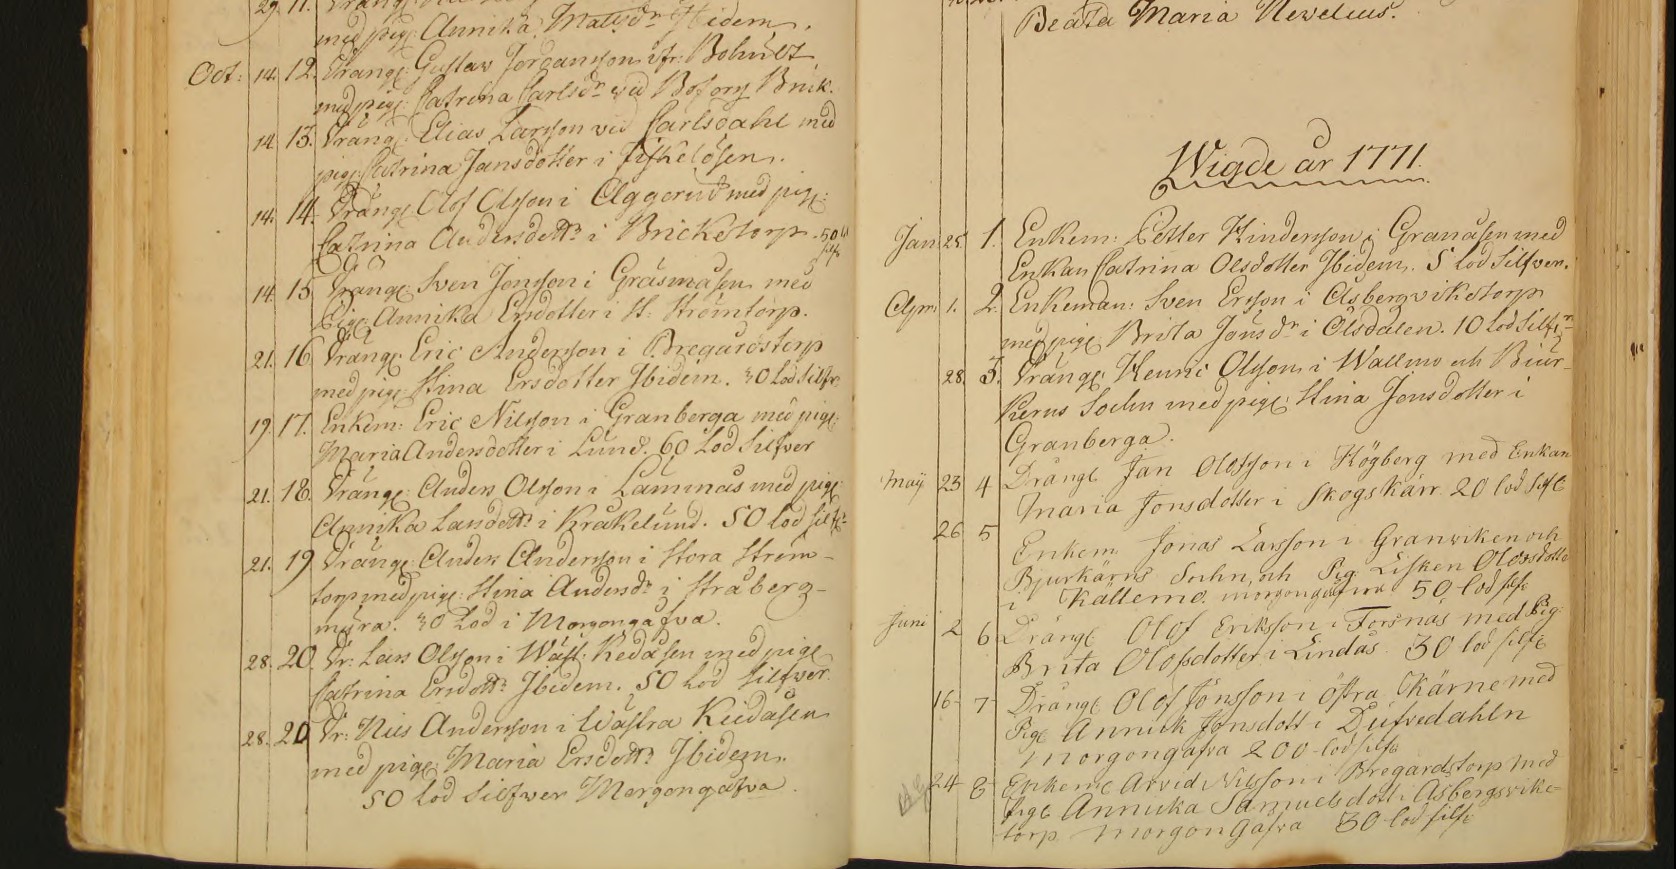 29. 11.
med pig: Annika Mattsdr Ibidem.
Oct: 14. 12. Dräng: Gustaw Jörgansson ifr: Bohult
med pig: Catrina Carlsdr wid Bofors Bruk.
14. 13. Dräng: Elias Larsson wid Carlsdahl med
pig: Catrina Jansdotter i Fiskelösen.
14. 14. Dräng: Olof Olsson i Aggerud med pig:
Catrina Andersdottr i Brickstorp. 50
14. 15 Dräng: Swen Jonsson i Gräsmåsen med
Pig: Annika Ersdotter i St: Strömtorp.
21. 16 Dräng: Eric Andersson i Bregårdstorp
med pig: Stina Ersdotter Ibidem. 30 Lod Silfr
19. 17. Enkem: Eric Nilsson i Granberga med pig:
Maria Andersdotter i Lund. 60 Lod Silfwer
21. 18. Dräng: Anders Olsson i Lämmås med pig:
Annika Larsdottr i Kråkelund. 50 Lod Silfr
21. 19 Dräng: Anders Andersson i Stora Ström-
torp med pig: Stina Andersdr i Stråberg-
myra. 30 Lod i Morgongåfva.
28. 20. Dr: Lars Olsson i Wäst: Kedåsen med pig:
Catrina Ersdottr Ibidem. 50 Lod Silfwer.
28. 20 Dr: Nils Andersson i Wästra Keidåsen
med pig: Maria Ersdottr Ibidem.
50 Lod Silfwer Morgongåfva.
Beata Maria Newelius.
Wigde år 1771.
Jan: 25. 1. Enkem: Petter Hindersson i Granåsen med
Enkan Catrina Olsdotter Ibidem. 5 Lod Silfwer.
Apr: 1. 2. Enkeman: Swen Ersson i Åsbergvikstorp
med pig: Brita Jönsdr i Ölsdalen. 10 Lod Silfr
28. 3. Dräng: Henric Olsson i Wallmo och Biur-
kerns Sochn med pig: Stina Jonsdotter i
Granberga.
Maÿ 23 4 Dräng: Jan Olofsson i Högberg med Enkan
Maria Jonsdotter i Skogskärr 20 lod silf:
26 5 Enkem Jonas Larsson i Granviken och
Bjurkärns Sochn, och Pig: Lisken Olofsdotter
i Källemo. morgongåfwa 50 lod silf:
Juni 2 6 Dräng: Olof Eriksson i Forsnäs med Pig:
Brita Olofsdotter i Lindås 30 lod silf:
16- 7- Dräng: Olof Jönsson i Östra Kärne med
Pig: Annick Jonsdott: i Diefvedahln
morgongåfva 200 lod silf:
24 8- Enkem: Arvid Nilsson i Bregårdstorp med
Pig: Annicka Samuelsdott: i Åsbergsviks-
torp morgongåfva 30 lod silf: